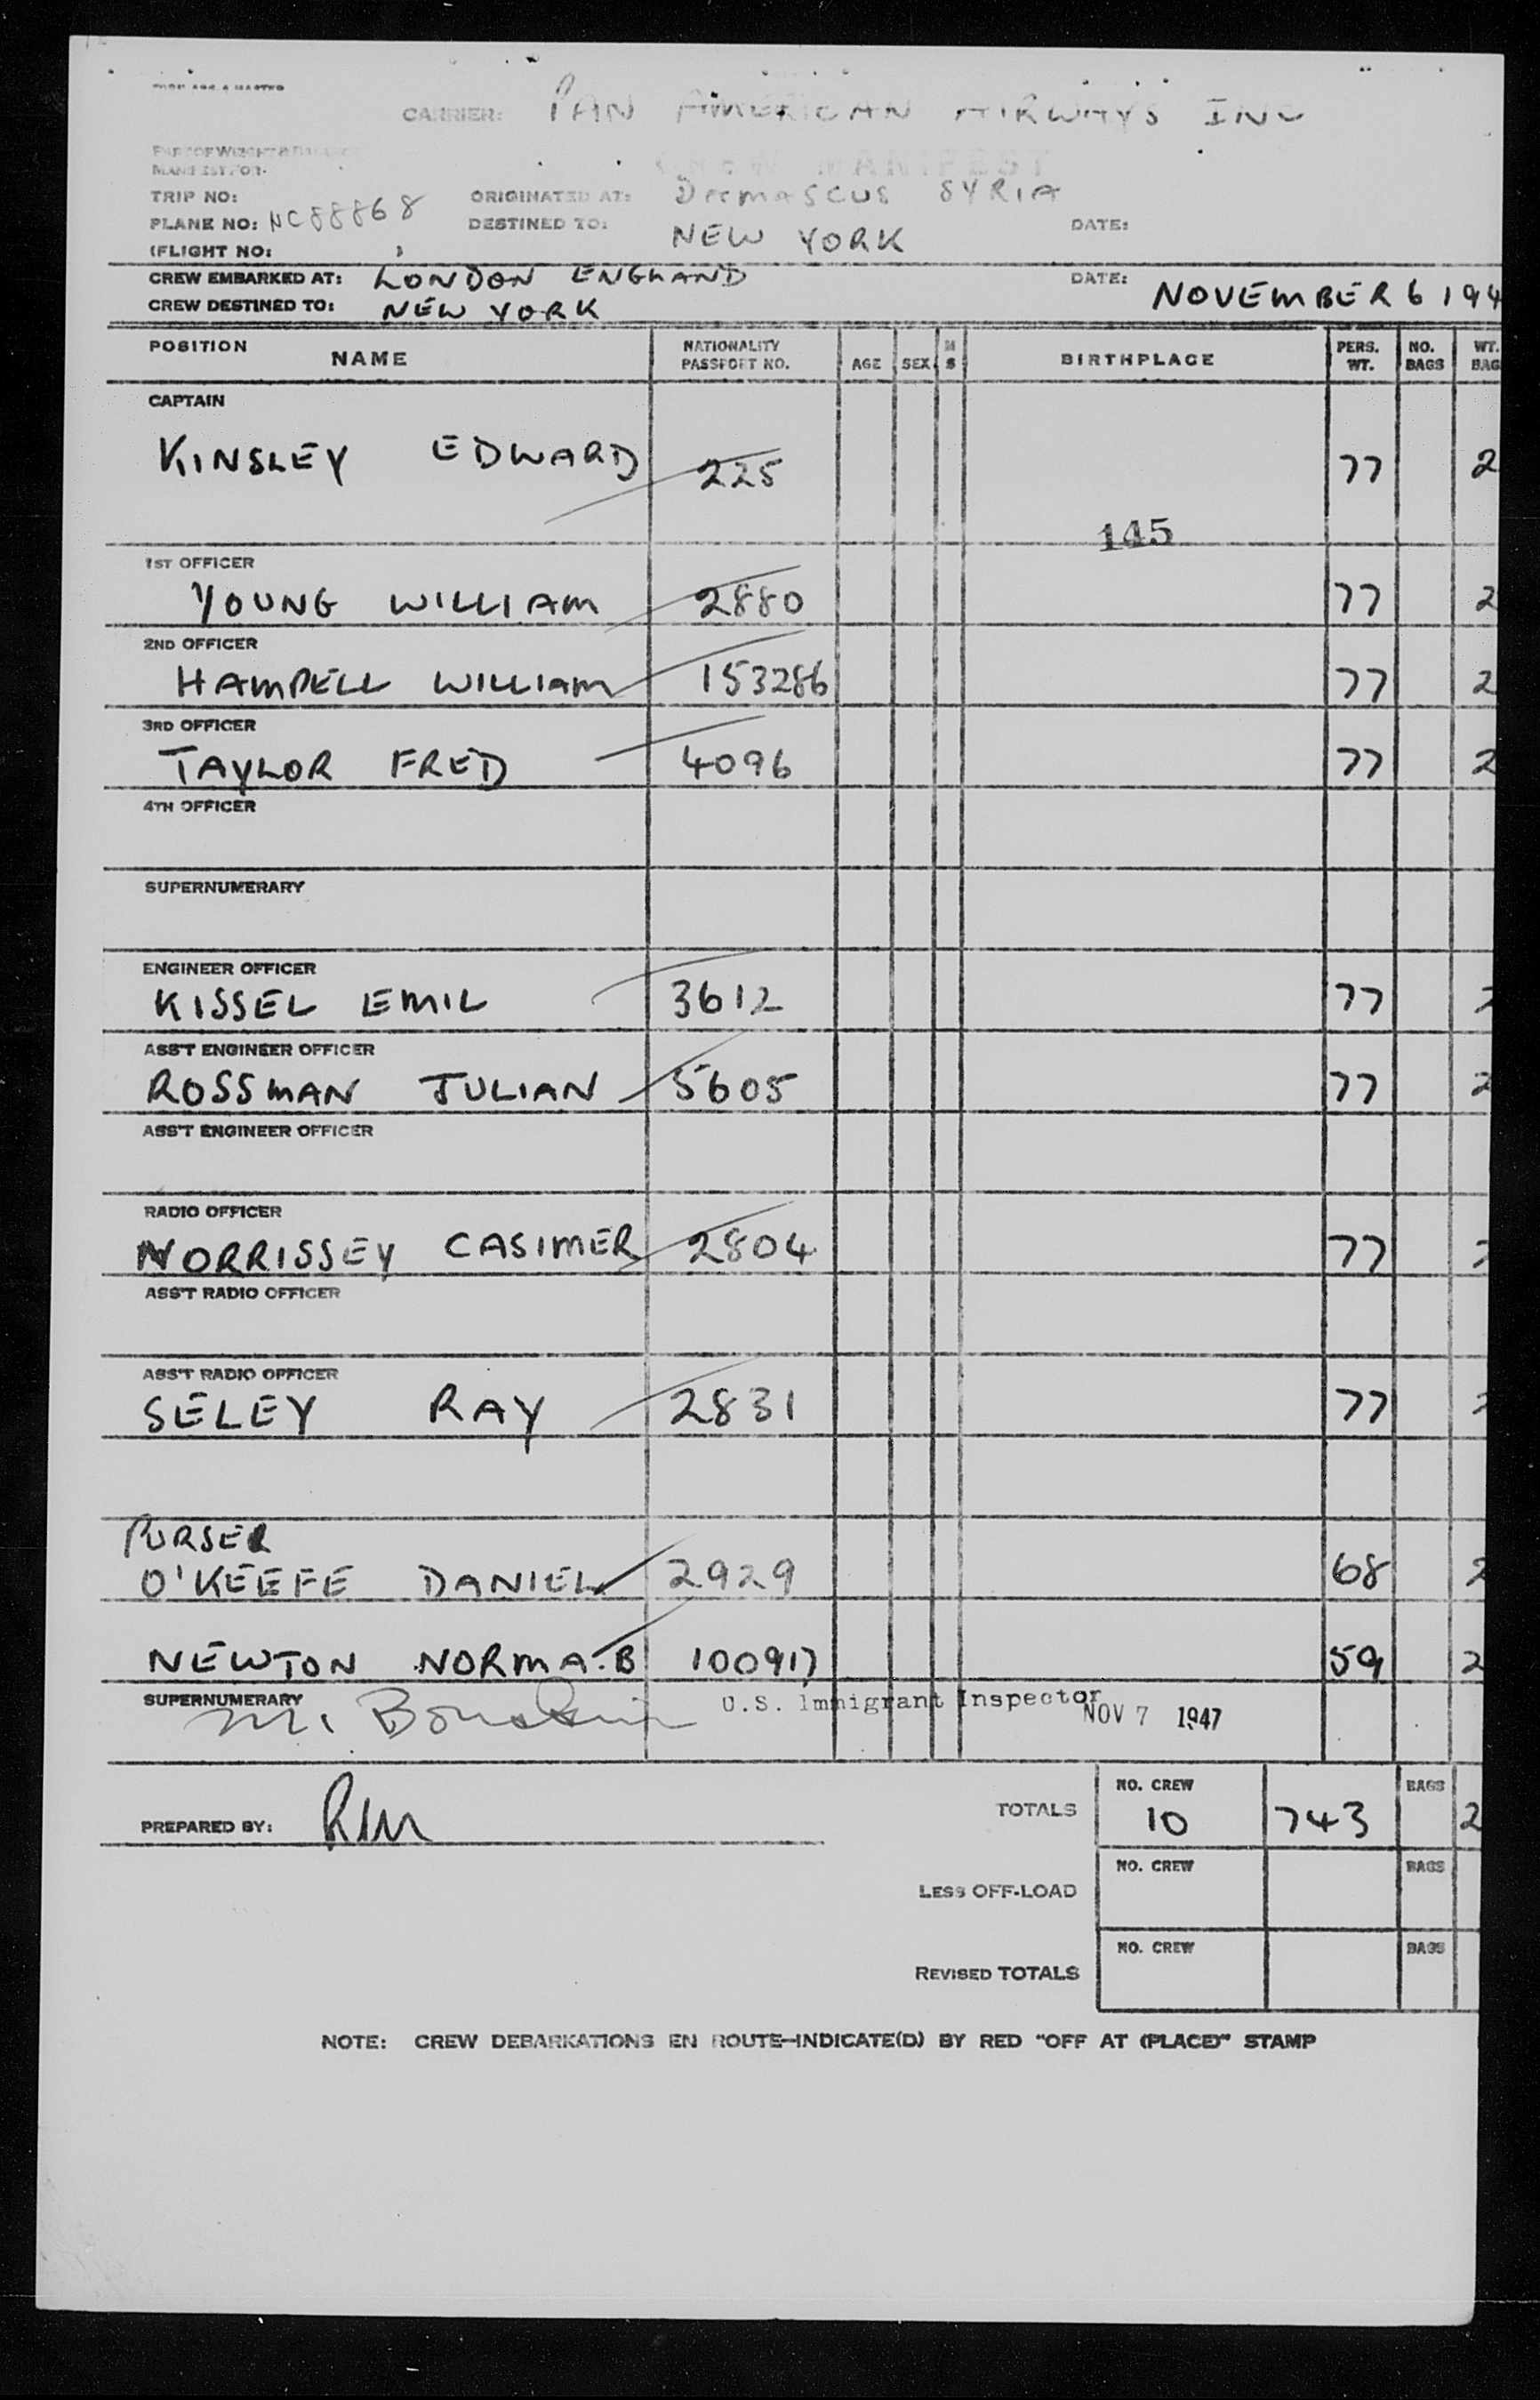 CARRIER: PAN AMERICAN AIRWAYS INC
CREW MANIFEST
TRIP NO: ORIGINATED AT: DAMASCUS SYRIA
PLANE NO: NC88868 DESTINED TO: NEW YORK DATE:
(FLIGHT NO: )
CREW EMBARKED AT: LONDON ENGLAND DATE: NOVEMBER 6 194
CREW DESTINED TO: NEW YORK
POSITION NAME NATIONALITY PASSPORT NO. AGE SEX M S BIRTHPLACE PERS. WT. NO. BAGS WT. BAG
CAPTAIN
KINSLEY EDWARD 225 77 2
145
1ST OFFICER
YOUNG WILLIAM 2880 77 2
2ND OFFICER
HAMPELL WILLIAM 153286 77 2
3RD OFFICER
TAYLOR FRED 4096 77 2
4TH OFFICER
SUPERNUMERARY
ENGINEER OFFICER
KISSEL EMIL 3612 77 2
ASS'T ENGINEER OFFICER
ROSSMAN JULIAN 5605 77 2
ASS'T ENGINEER OFFICER
RADIO OFFICER
NORRISSEY CASIMER 2804 77 2
ASS'T RADIO OFFICER
ASS'T RADIO OFFICER
SELEY RAY 2831 77 2
PURSER
O'KEEFE DANIEL 2929 68 2
NEWTON NORMA.B 100917 59 2
SUPERNUMERARY
M. U.S. Immigrant Inspector NOV 7 1947
PREPARED BY: TOTALS NO. CREW 10 743 BAGS 2
LESS OFF-LOAD NO. CREW BAGS
REVISED TOTALS NO. CREW BAGS
NOTE: CREW DEBARKATIONS EN ROUTE—INDICATE(D) BY RED "OFF AT (PLACE)" STAMP